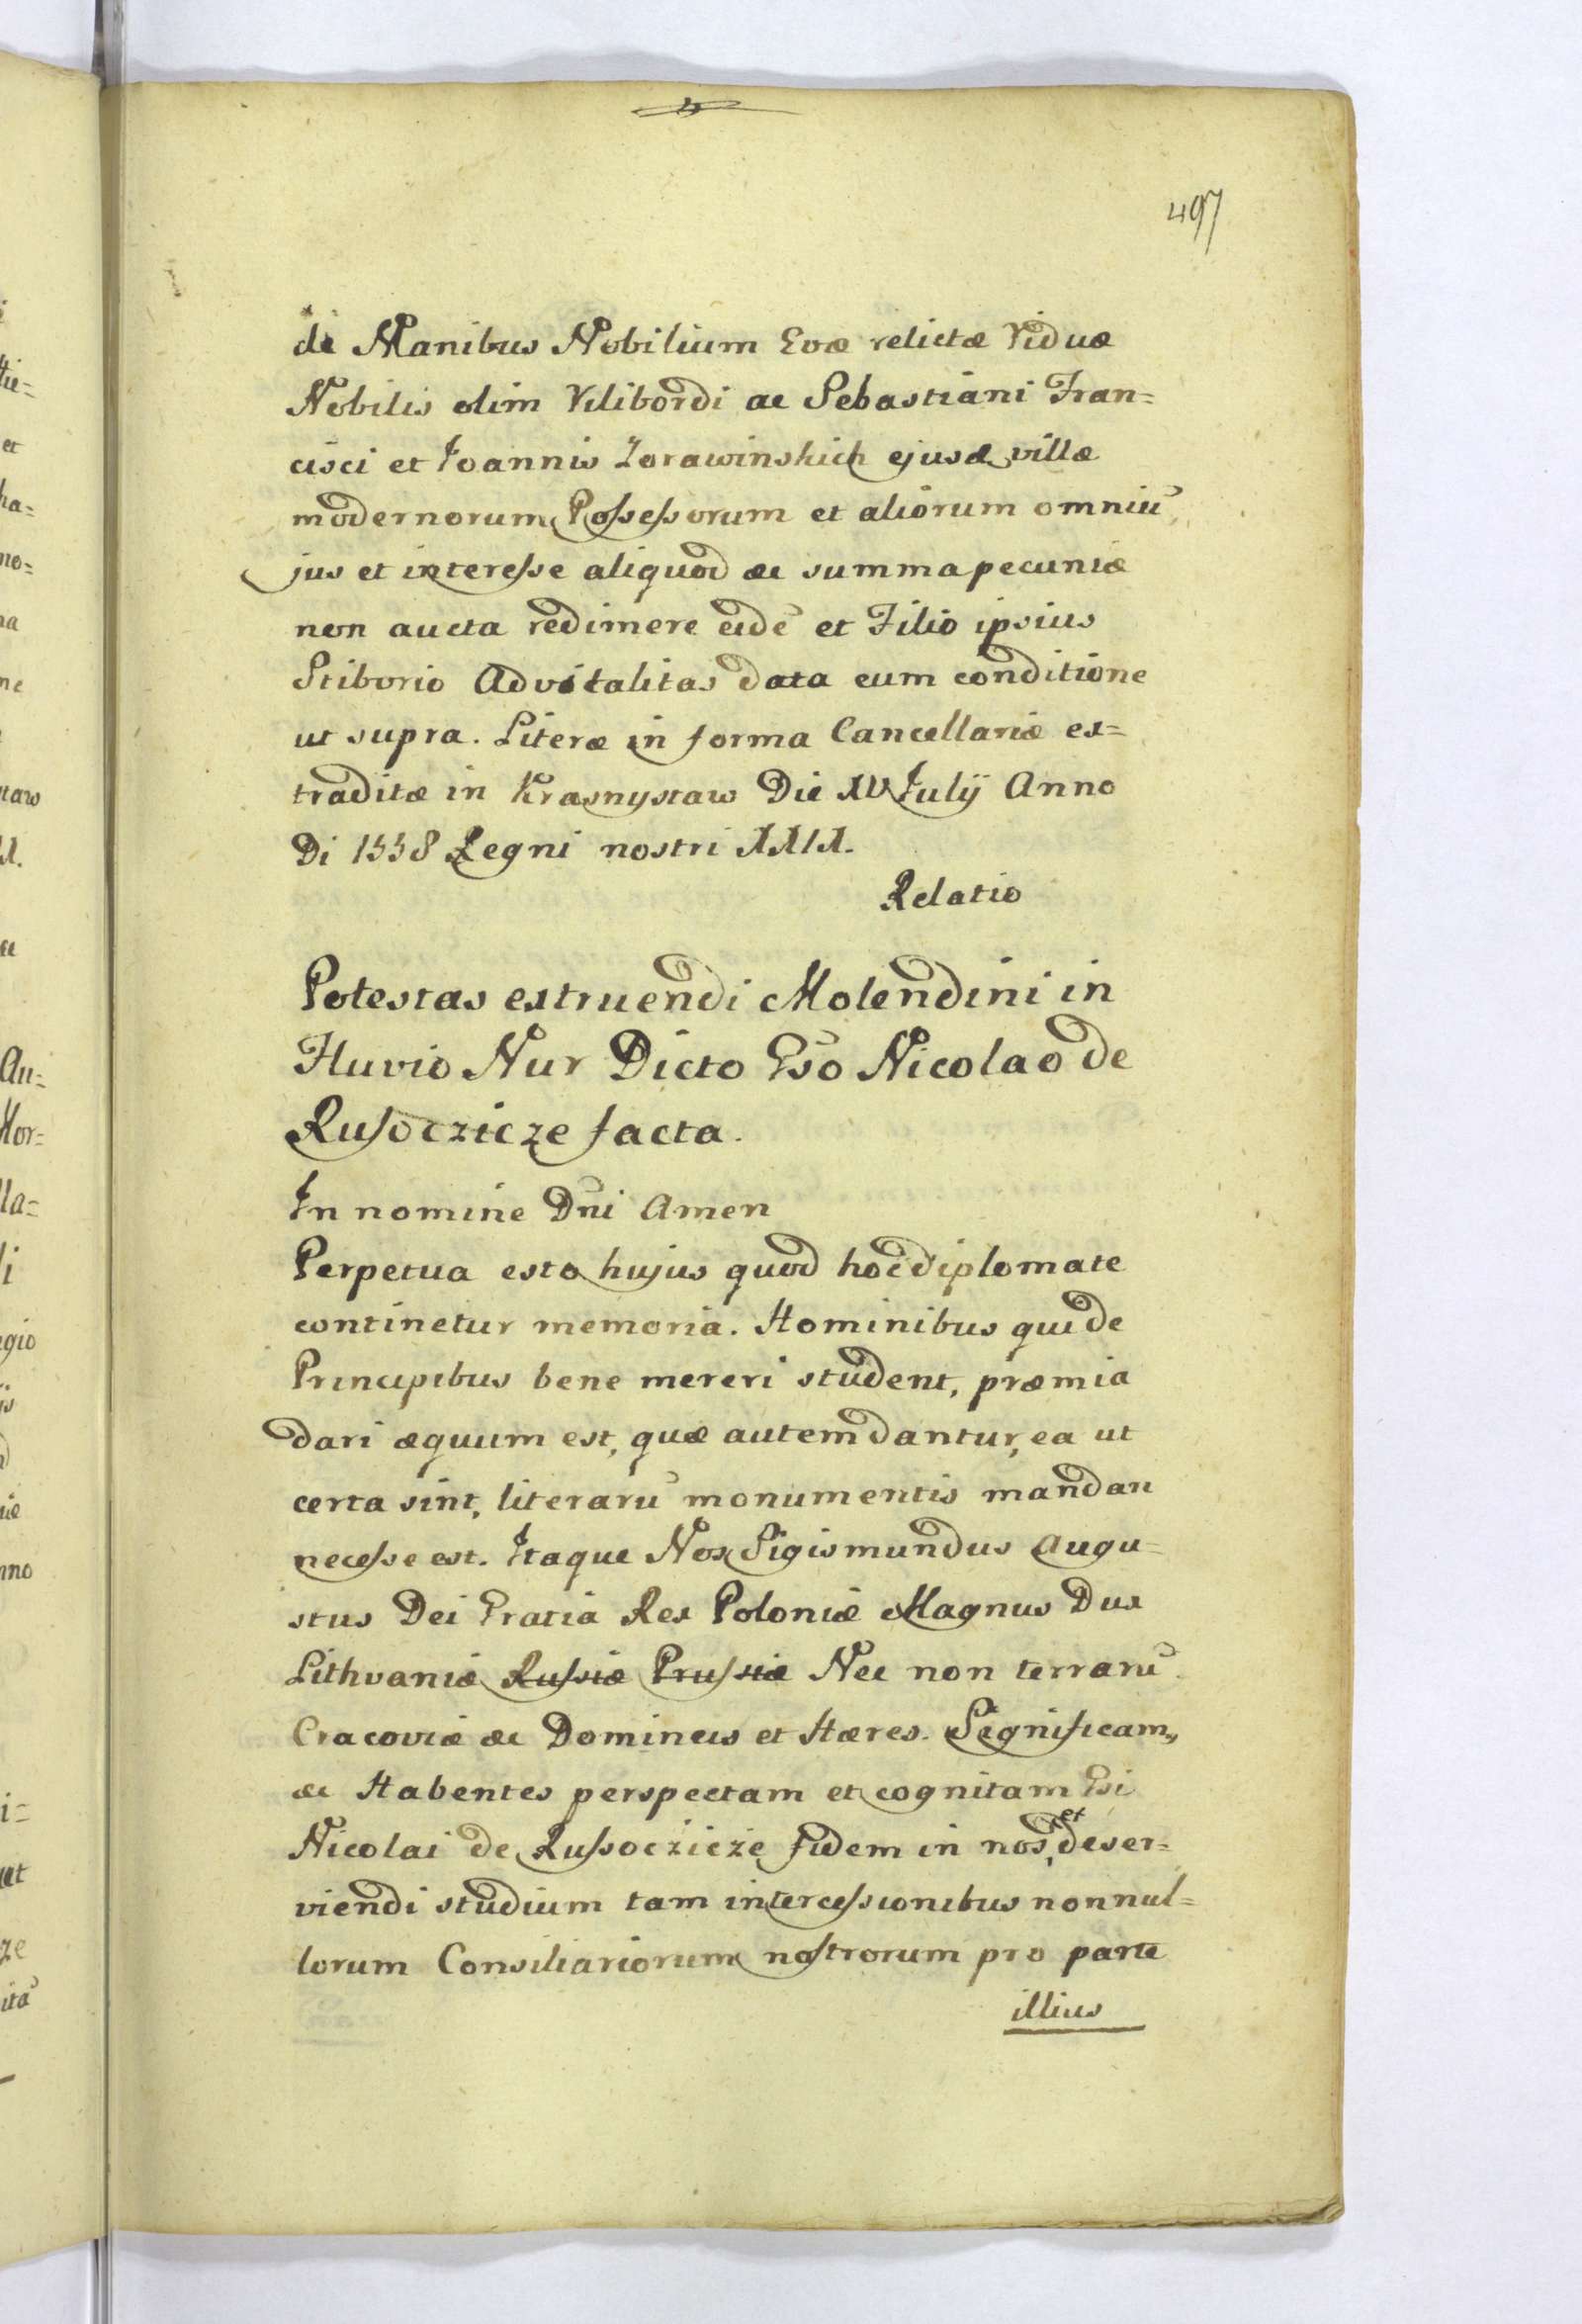 497
de Manibus Nobilium Evæ relictæ Viduæ
Nobilis olim Vilibordi ac Sebastiani Fran=
cisci et Joannis Zorawinskich ejusd villæ
modernorum Possessorum et aliorum omniū
jus et interesse aliquod ac summa pecuniæ
non aucta redimere eidē et Filio ipsius
Stiborio Advitalitas data cum conditione
ut supra. Literæ in forma Cancellariæ ex=
traditæ in Krasnystaw Die XV Julij Anno
Di 1558 Regni nostri XXIX.
Relatio
Potestas extruendi Molendini in
Fluvio Nur Dicto Gso Nicolao de
Russoczicze facta.
In nomine Dni Amen
Perpetua esto hujus quod hoc diplomate
continetur memoria. Hominibus qui de
Principibus bene mereri student, præmia
dari æquum est, quæ autem dantur, ea ut
certa sint, literarū monumentis mandari
necesse est. Itaque Nos Sigismundus Augu=
stus Dei Gratia Rex Poloniæ Magnus Dux
Lithvaniæ Russiæ Prussiæ Nec non terrarū
Cracoviæ &c Dominus et Hæres. Significam,,
&c Habentes perspectam et cognitam Gsi
Nicolai de Russoczicze fidem in nos, et deser=
viendi studium tam intercessionibus nonnul=
lorum Consiliariorum nostrorum pro parte
illius